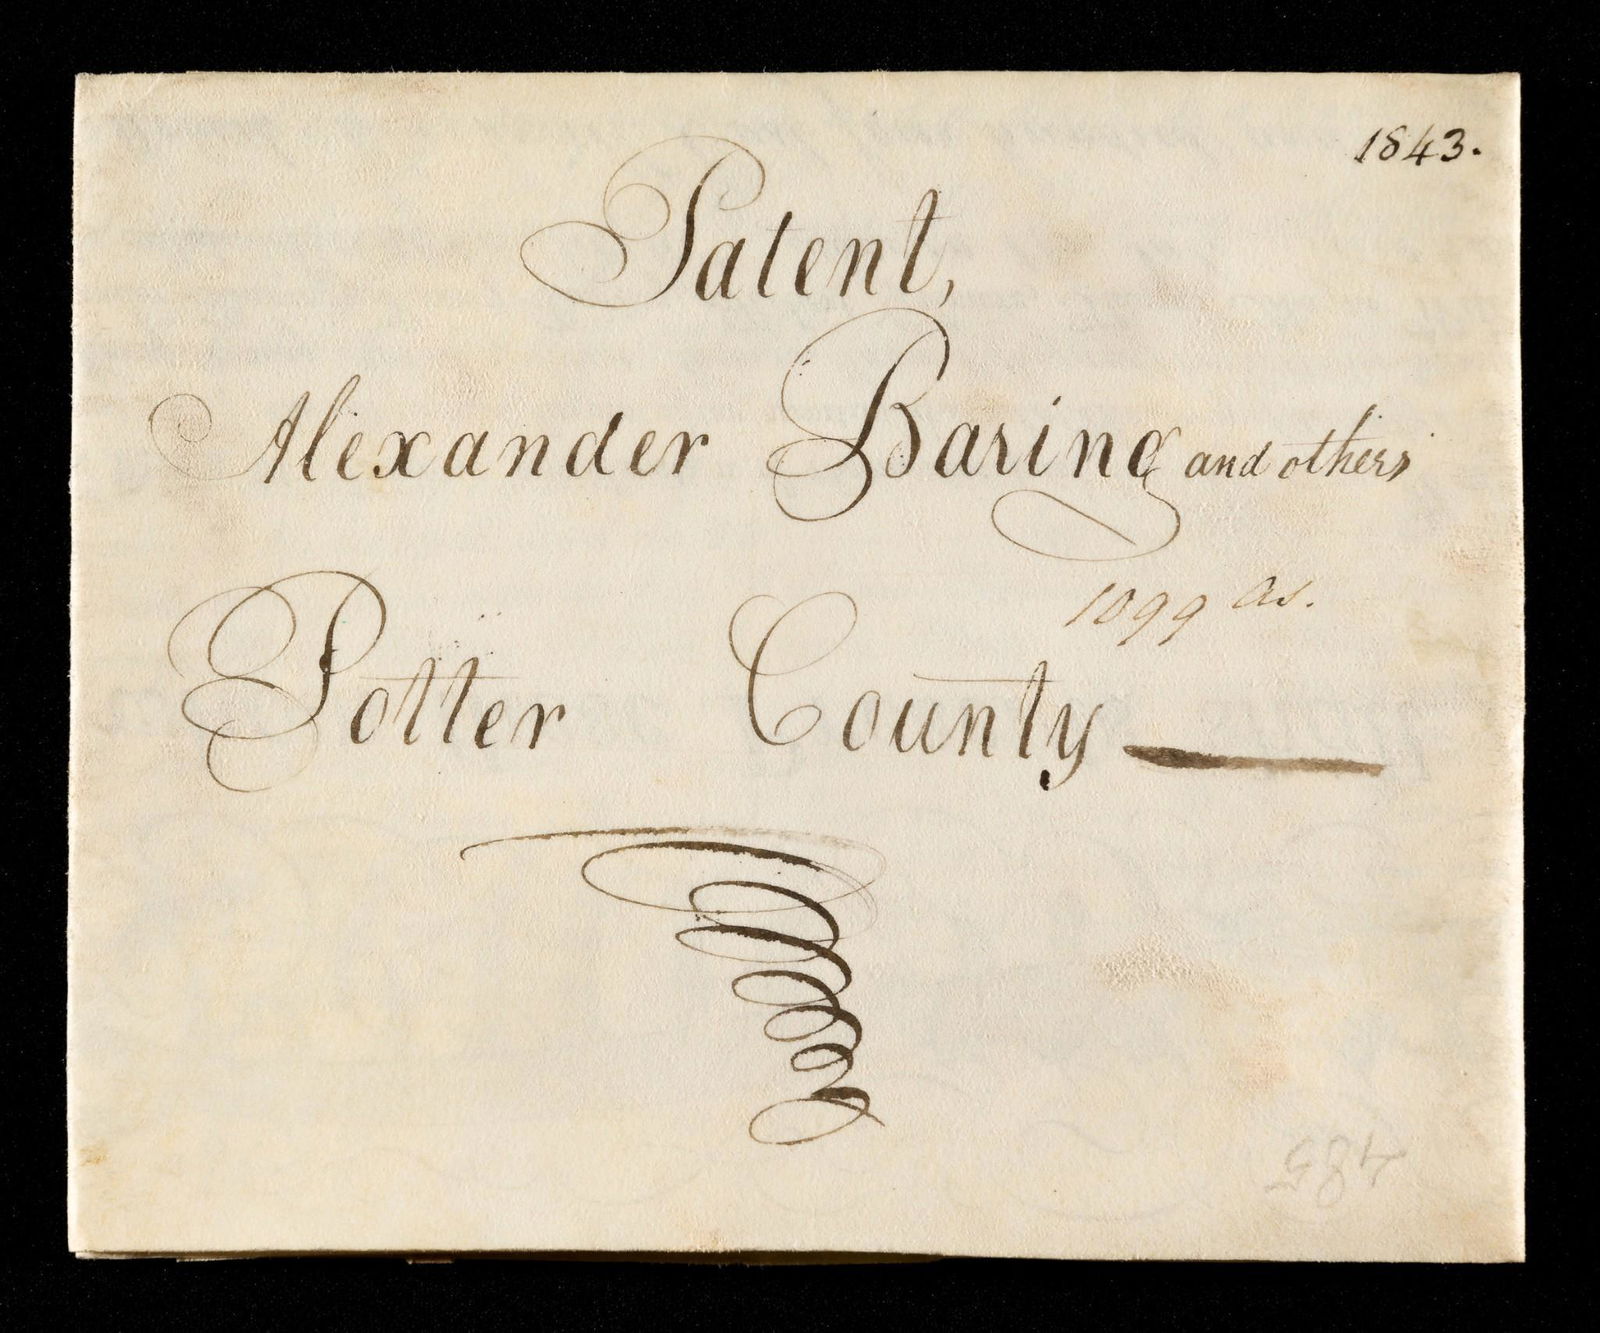 1843.
Patent,
Alexander Baring and others
1099 as.
Potter County
485